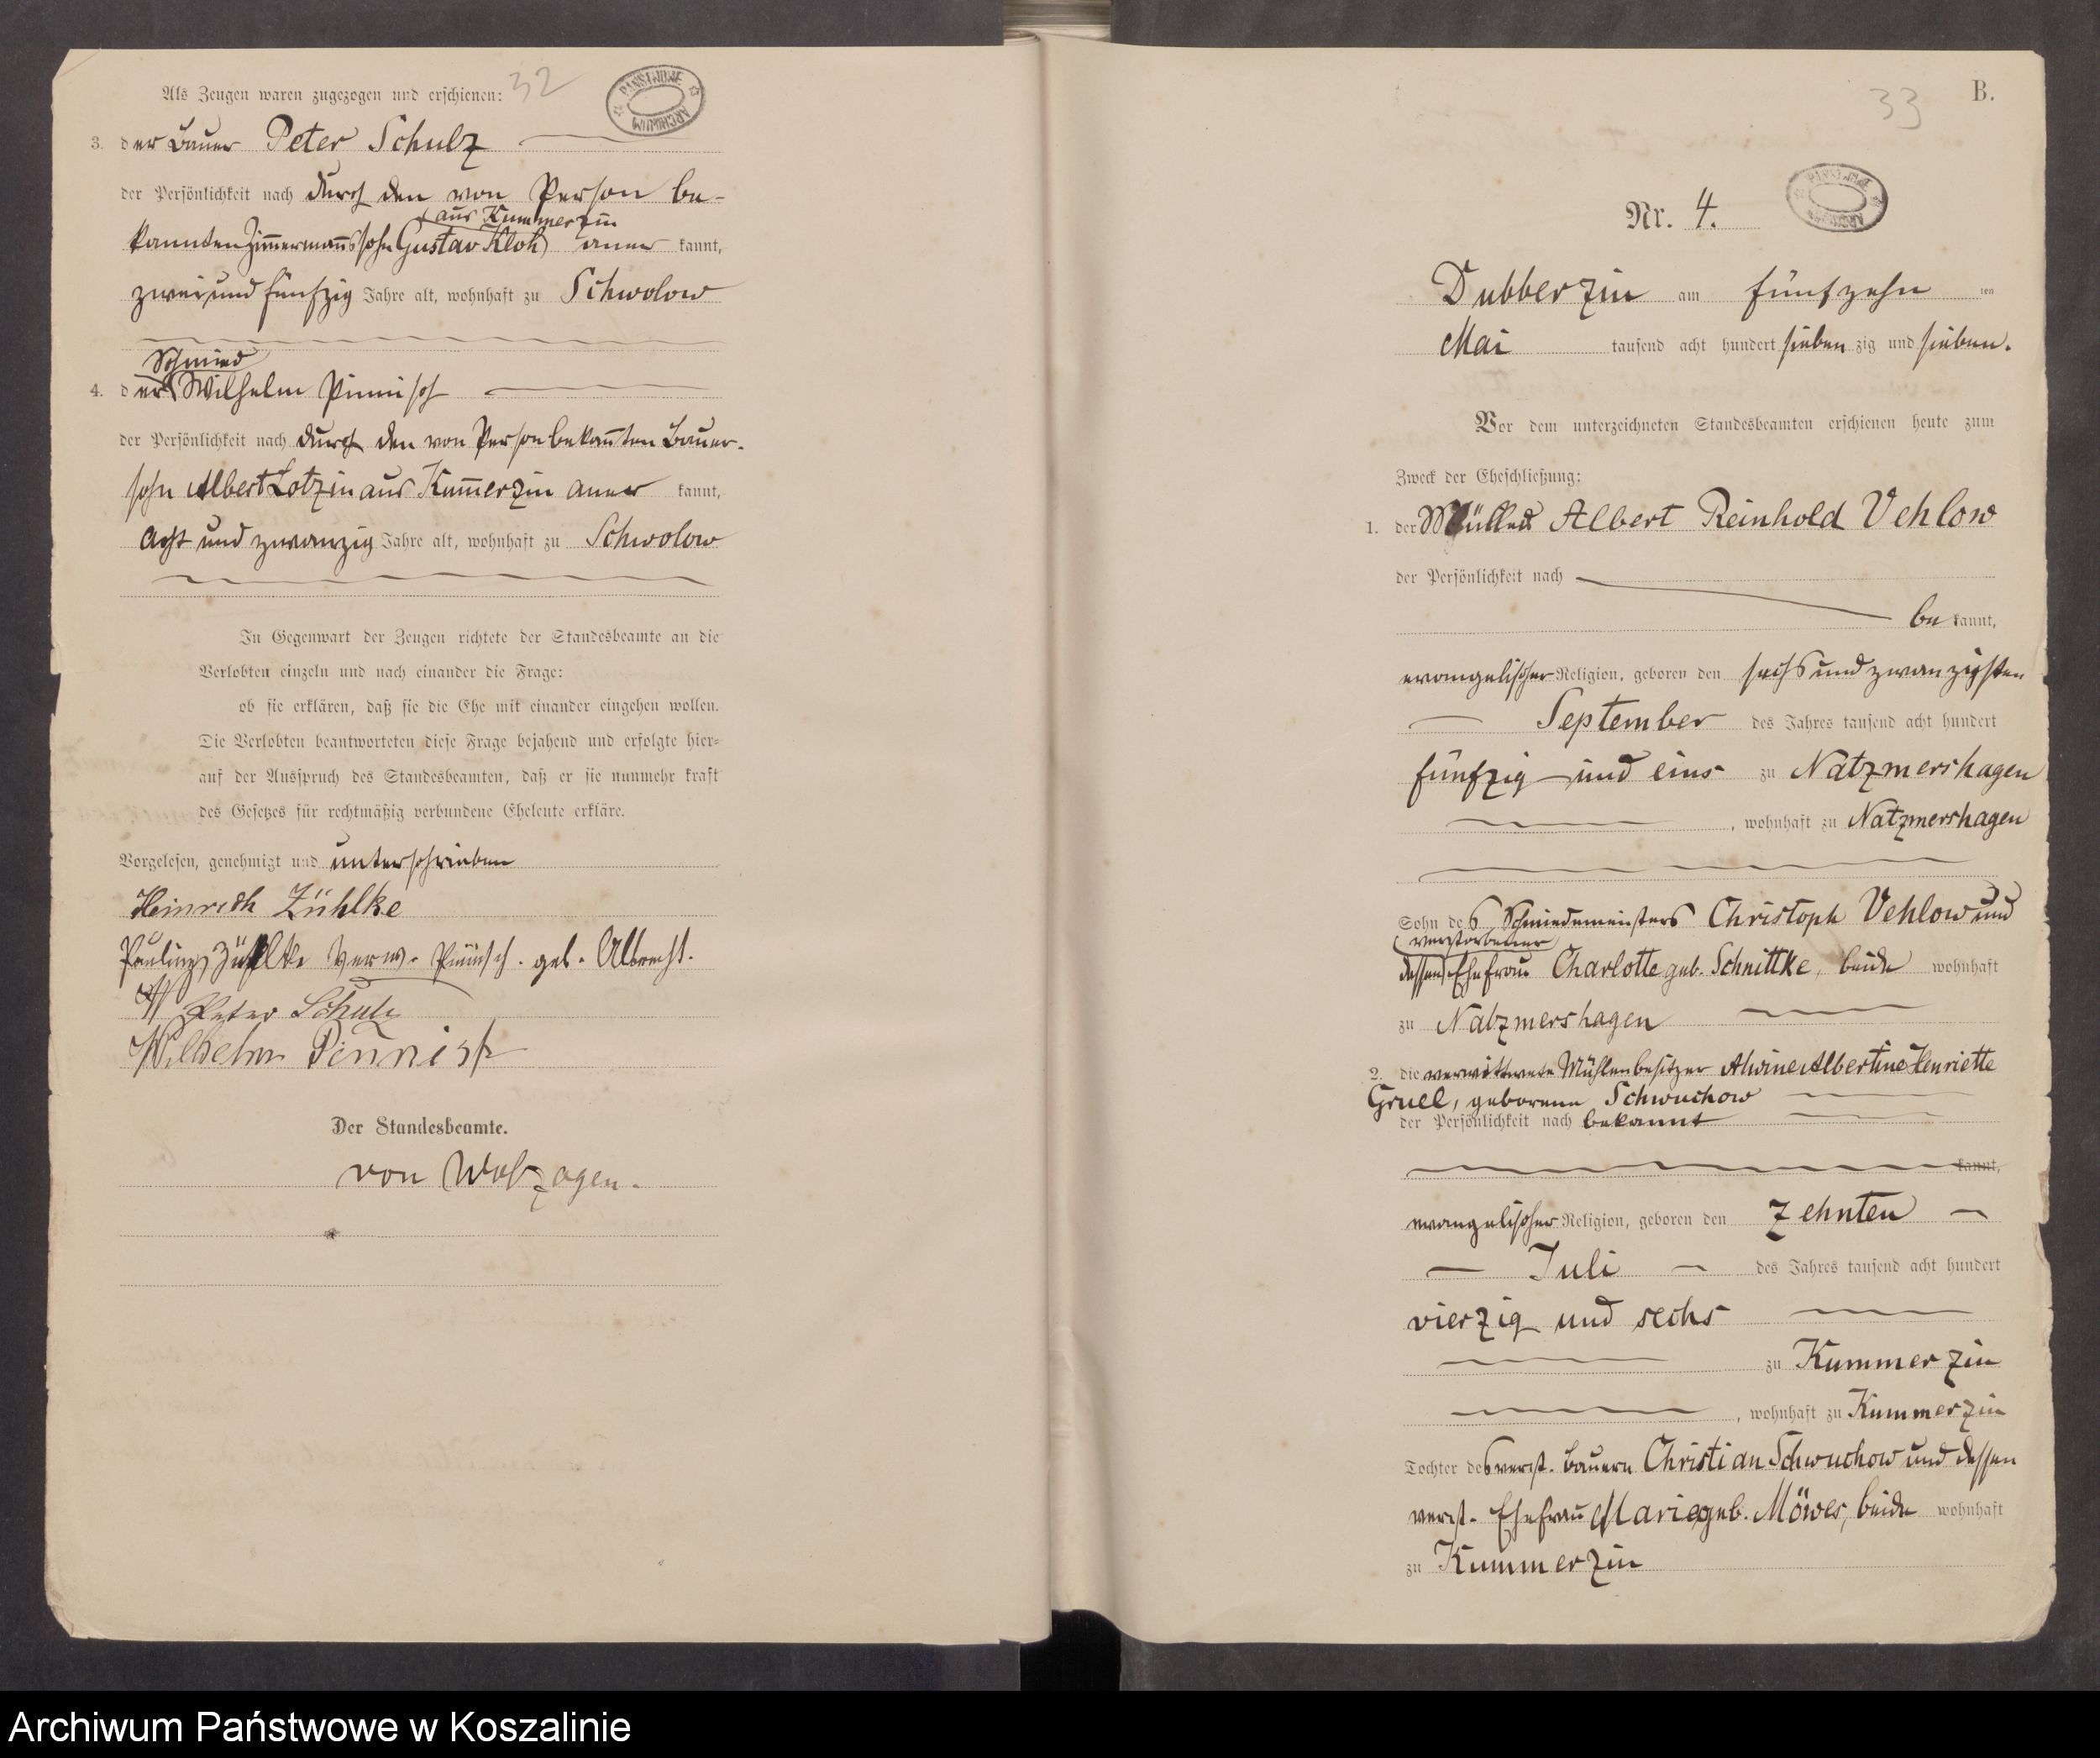 Als Zeugen waren zugezogen und erschienen: 32
PAŃSTWOWE ARCHIWUM
3. der Bauer Peter Schulz
der Persönlichkeit nach durch den von Person be-
aus Kummerzin
kannten Zimmermannssohn Gustav Kloh aner kannt,
zwei und fünfzig Jahre alt, wohnhaft zu Schwolow
Schmied
4. der Wilhelm Pinnisch
der Persönlichkeit nach durch den von Person bekannten Bauer-
sohn Albert Lotzin aus Kummerzin aner kannt,
acht und zwanzig Jahre alt, wohnhaft zu Schwolow
In Gegenwart der Zeugen richtete der Standesbeamte an die
Verlobten einzeln und nach einander die Frage:
ob sie erklären, daß sie die Ehe mit einander eingehen wollen.
Die Verlobten beantworteten diese Frage bejahend und erfolgte hier-
auf der Ausspruch des Standesbeamten, daß er sie nunmehr kraft
des Gesetzes für rechtmäßig verbundene Eheleute erkläre.
Vorgelesen, genehmigt und unterschrieben
Heinrich Zühlke
Pauline Zühlke verw. Pinnisch. geb. Albrecht.
Peter Schulz
Wilhelm Pinnisch
Der Standesbeamte.
von Wolzogen.
33 B.
PAŃSTWOWE ARCHIWUM
Nr. 4.
Dubberzin am fünfzehn ten
Mai tausend acht hundert sieben zig und sieben.
Vor dem unterzeichneten Standesbeamten erschienen heute zum
Zweck der Eheschließung:
1. der Müller Albert Reinhold Vehlow
der Persönlichkeit nach
be kannt,
evangelischer Religion, geboren den sechs und zwanzigsten
September des Jahres tausend acht hundert
fünfzig und eins zu Natzmershagen
, wohnhaft zu Natzmershagen
Sohn des Schmiedemeisters Christoph Vehlow und
verstorbener
dessen Ehefrau Charlotte geb. Schnittke, beide wohnhaft
zu Natzmershagen
2. die verwittwete Mühlenbesitzer Alwine Albertine Henriette
Gruel, geborene Schwuchow
der Persönlichkeit nach bekannt
kannt,
evangelischer Religion, geboren den zehnten
Juli des Jahres tausend acht hundert
vierzig und sechs
zu Kummerzin
, wohnhaft zu Kummerzin
Tochter des verst. Bauern Christian Schwuchow und dessen
verst. Ehefrau Marie geb. Möwes, beide wohnhaft
zu Kummerzin
Archiwum Państwowe w Koszalinie